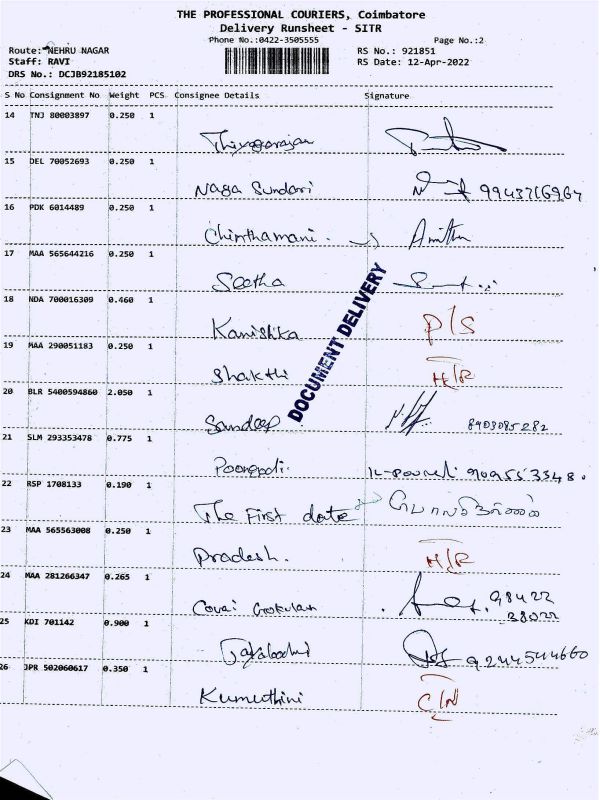 THE PROFESSIONAL COURIERS, Coimbatore
Delivery Runsheet - SITR
Phone No.:0422-3505555
Page No.:2
Route: NEHRU NAGAR
RS No.: 921851
Staff: RAVI
RS Date: 12-Apr-2022
DRS No.: DCJB92185102
S No Consignment No Weight PCS Consignee Details Signature
14 TNJ 80003897 0.250 1
Thiyagarajan
15 DEL 70052693 0.250 1
Naga Sundari 9943716967
16 PDK 6014489 0.250 1
Chinthamani. Amitha
17 MAA 565644216 0.250 1
Seetha
18 NDA 700016309 0.460 1
Kanishka P/S
19 MAA 290051183 0.250 1
Shakthi H/R
20 BLR 5400594860 2.050 1
Sandeep 8903085282
21 SLM 293353478 0.775 1
Poongodi. 9095533548.
22 RSP 1708133 0.190 1
The First date
23 MAA 565563008 0.250 1
Pradesh. H/R
24 MAA 281266347 0.265 1
Covai Gokulam 98422
38022
25 KDI 701142 0.900 1
9244544660
26 JPR 502060617 0.350 1
Kumuthini C/N
DOCUMENT DELIVERY